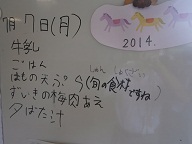 7月7日(月)
2014.
牛乳
ごはん
はもの天ぷら(旬の食材ですね)
ずいきの梅肉あえ
夕ばた汁